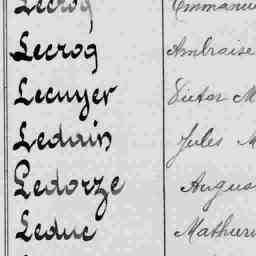 Lecrog Emmanue
Lecrog Ambroise
Lecuyer Victor M
Ledain Jules M
Ledorze Augus
Leduc Mathuri